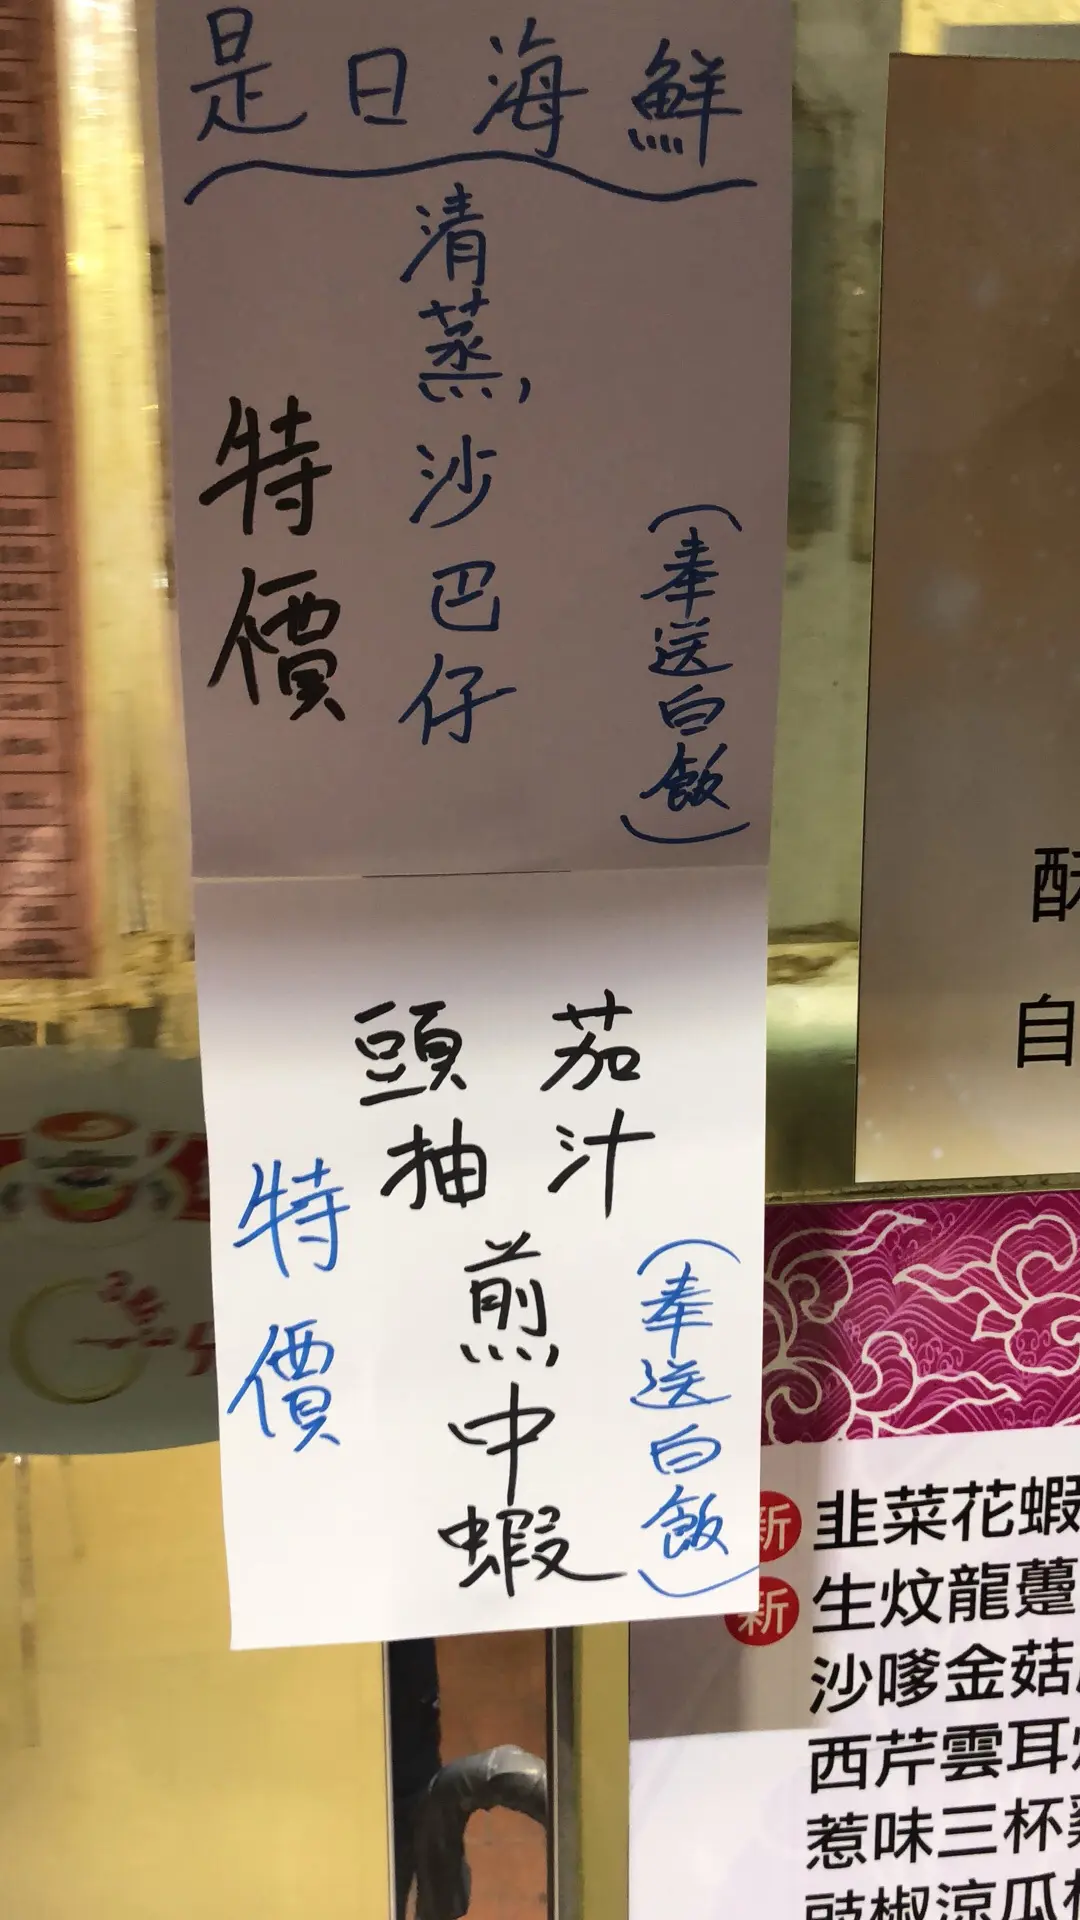 是日海鮮
清蒸沙巴仔
特價
(奉送白飯)
茄汁
頭抽
煎中蝦
特價
(奉送白飯)
酥
自
新 韭菜花蝦
新 生炆龍躉
沙嗲金菇
西芹雲耳
惹味三杯
豉椒涼瓜